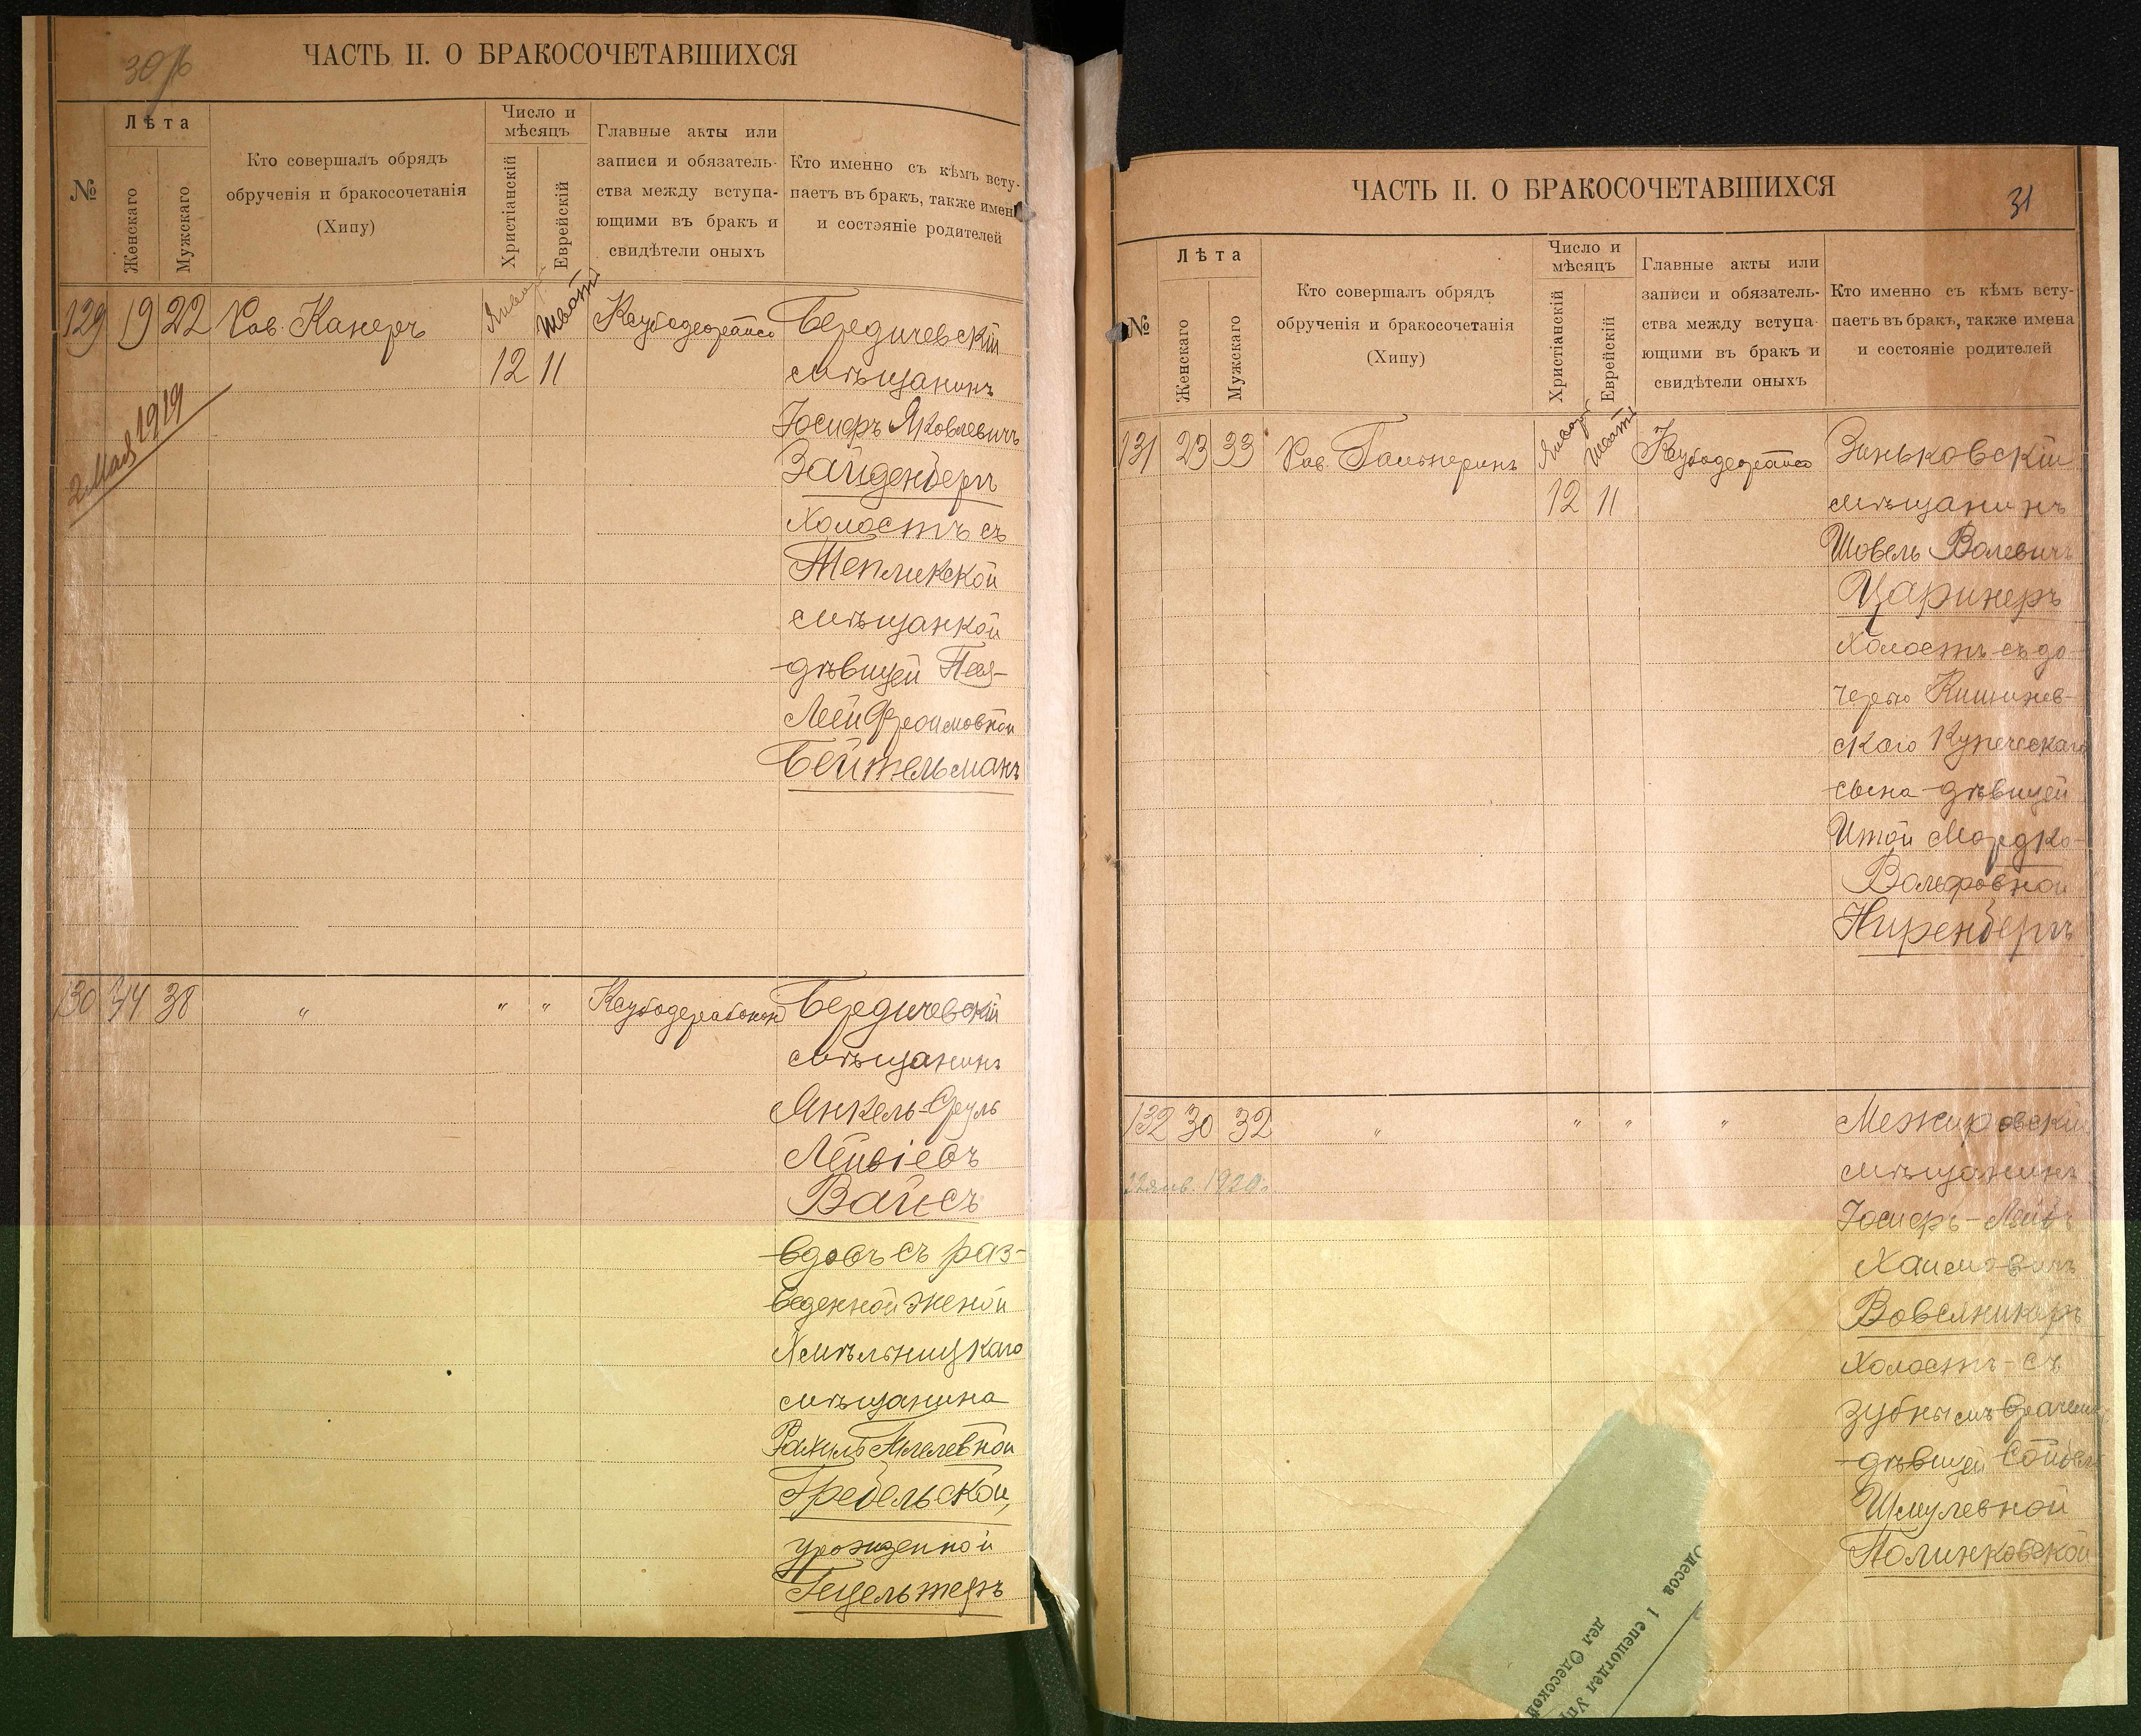 30 об
ЧАСТЬ II. О БРАКОСОЧЕТАВШИХСЯ
№
Лѣта
Женскаго
Мужскаго
Кто совершалъ обрядъ
обрученія и бракосочетанія
(Хипу)
Число и
мѣсяцъ
Христіанскій
Еврейскій
Главные акты или
записи и обязатель-
ства между вступа-
ющими въ бракъ и
свидѣтели оныхъ
Кто именно съ кѣмъ всту-
паетъ въ бракъ, также имена
и состояніе родителей
129 19 22 Рав. Канеръ Январ Шватъ Бердичевскій
12 11 мѣщанинъ
2 Мая 1919
Іосифъ Яковлевичъ
Зайденберг
холостъ съ
Тепликской
мѣщанкой
дѣвицей Пея-
Леей Фроимовной
Бейтельманъ
130 34 38 " " " Бердичевскій
мѣщанинъ
Янкель-Сруль
Лейвіевъ
Вайсъ
вдовъ съ раз-
веденной женой
Хмѣльницкаго
мѣщанина
Рахиль
Гребельской,
урожденной
Гецельтеръ
31
ЧАСТЬ II. О БРАКОСОЧЕТАВШИХСЯ
№
Лѣта
Женскаго
Мужскаго
Кто совершалъ обрядъ
обрученія и бракосочетанія
(Хипу)
Число и
мѣсяцъ
Христіанскій
Еврейскій
Главные акты или
записи и обязатель-
ства между вступа-
ющими въ бракъ и
свидѣтели оныхъ
Кто именно съ кѣмъ всту-
паетъ въ бракъ, также имена
и состояніе родителей
131 23 33 Рав. Гальперинъ Январ Шватъ Зиньковскій
12 11 мѣщанинъ
Шовель Волевичъ
Царинеръ
холостъ съ до-
черью Кишинев-
скаго Купеческаго
сына дѣвицей
Итой Мордко-
Вольфовной
Ниренбергъ
132 30 32 " " " " Межировскій
22 янв. 1920 г. мѣщанинъ
Іосифъ-Лейбъ
Хаимовичъ
Вовсяникеръ
холостъ съ
зубнымъ врачемъ
дѣвицей Сойбел
Шмулевной
Полинковской
Одесса 1 спецотдел Упр
дел Одесской